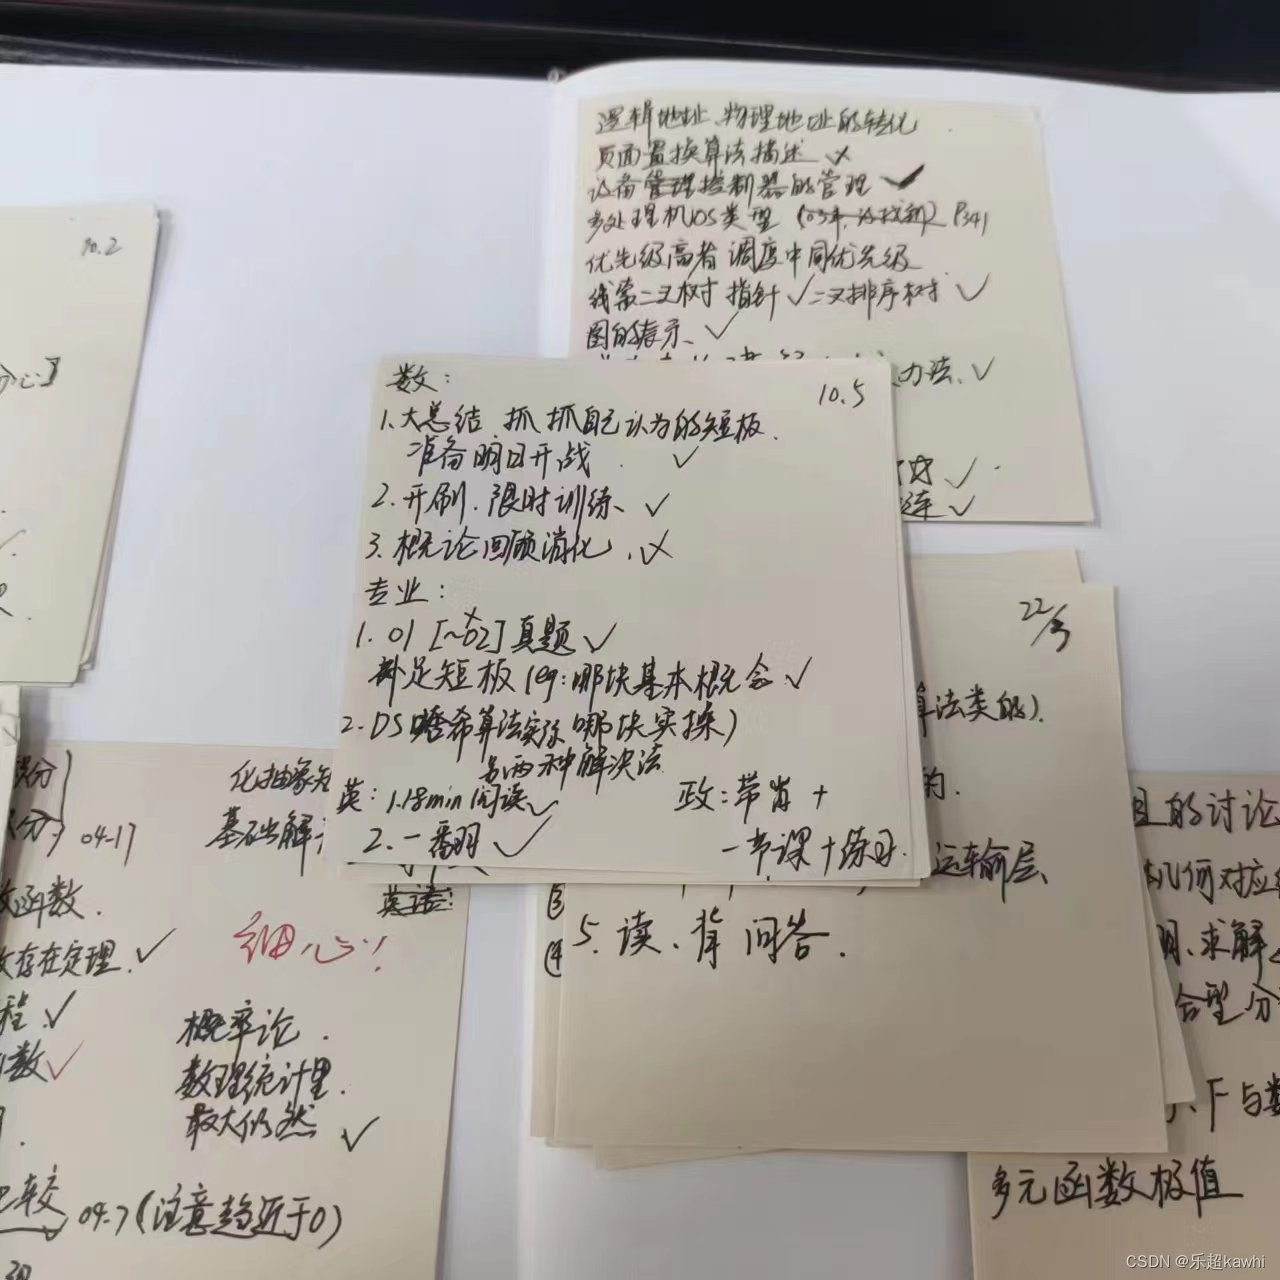 逻辑地址、物理地址的转化
页面置换算法描述
设备管理控制器的管理
多处理机OS类型 P341
优先级高者调度中同优先级
线索二叉树 指针 二叉排序树
图的表示、
办法、
10.2
数:
10.5
1.大总结 抓抓自己认为的短板.
准备明日开战
2.开刷.限时训练、
3.概论回顾消化.
专业:
1. 01 [~02]真题
补足短板(eg:哪块基本概念
2.DS 哈希算法实际 哪块实操)
另两种解决法
英: 1.18min阅读
政:带背+
2.一翻
一节课+练习.
22/3
算法类的).
的.
运输层、
5.读、背 问答.
04-17
化抽象
基础解
英语:
函数.
细心!
存在定理.
程.
数
概率论.
数理统计里.
最大仍然
比较
04.7(注意趋近于0)
的讨论
几何对应
求解
合型分
下与数
多元函数极值
CSDN @乐超kawhi